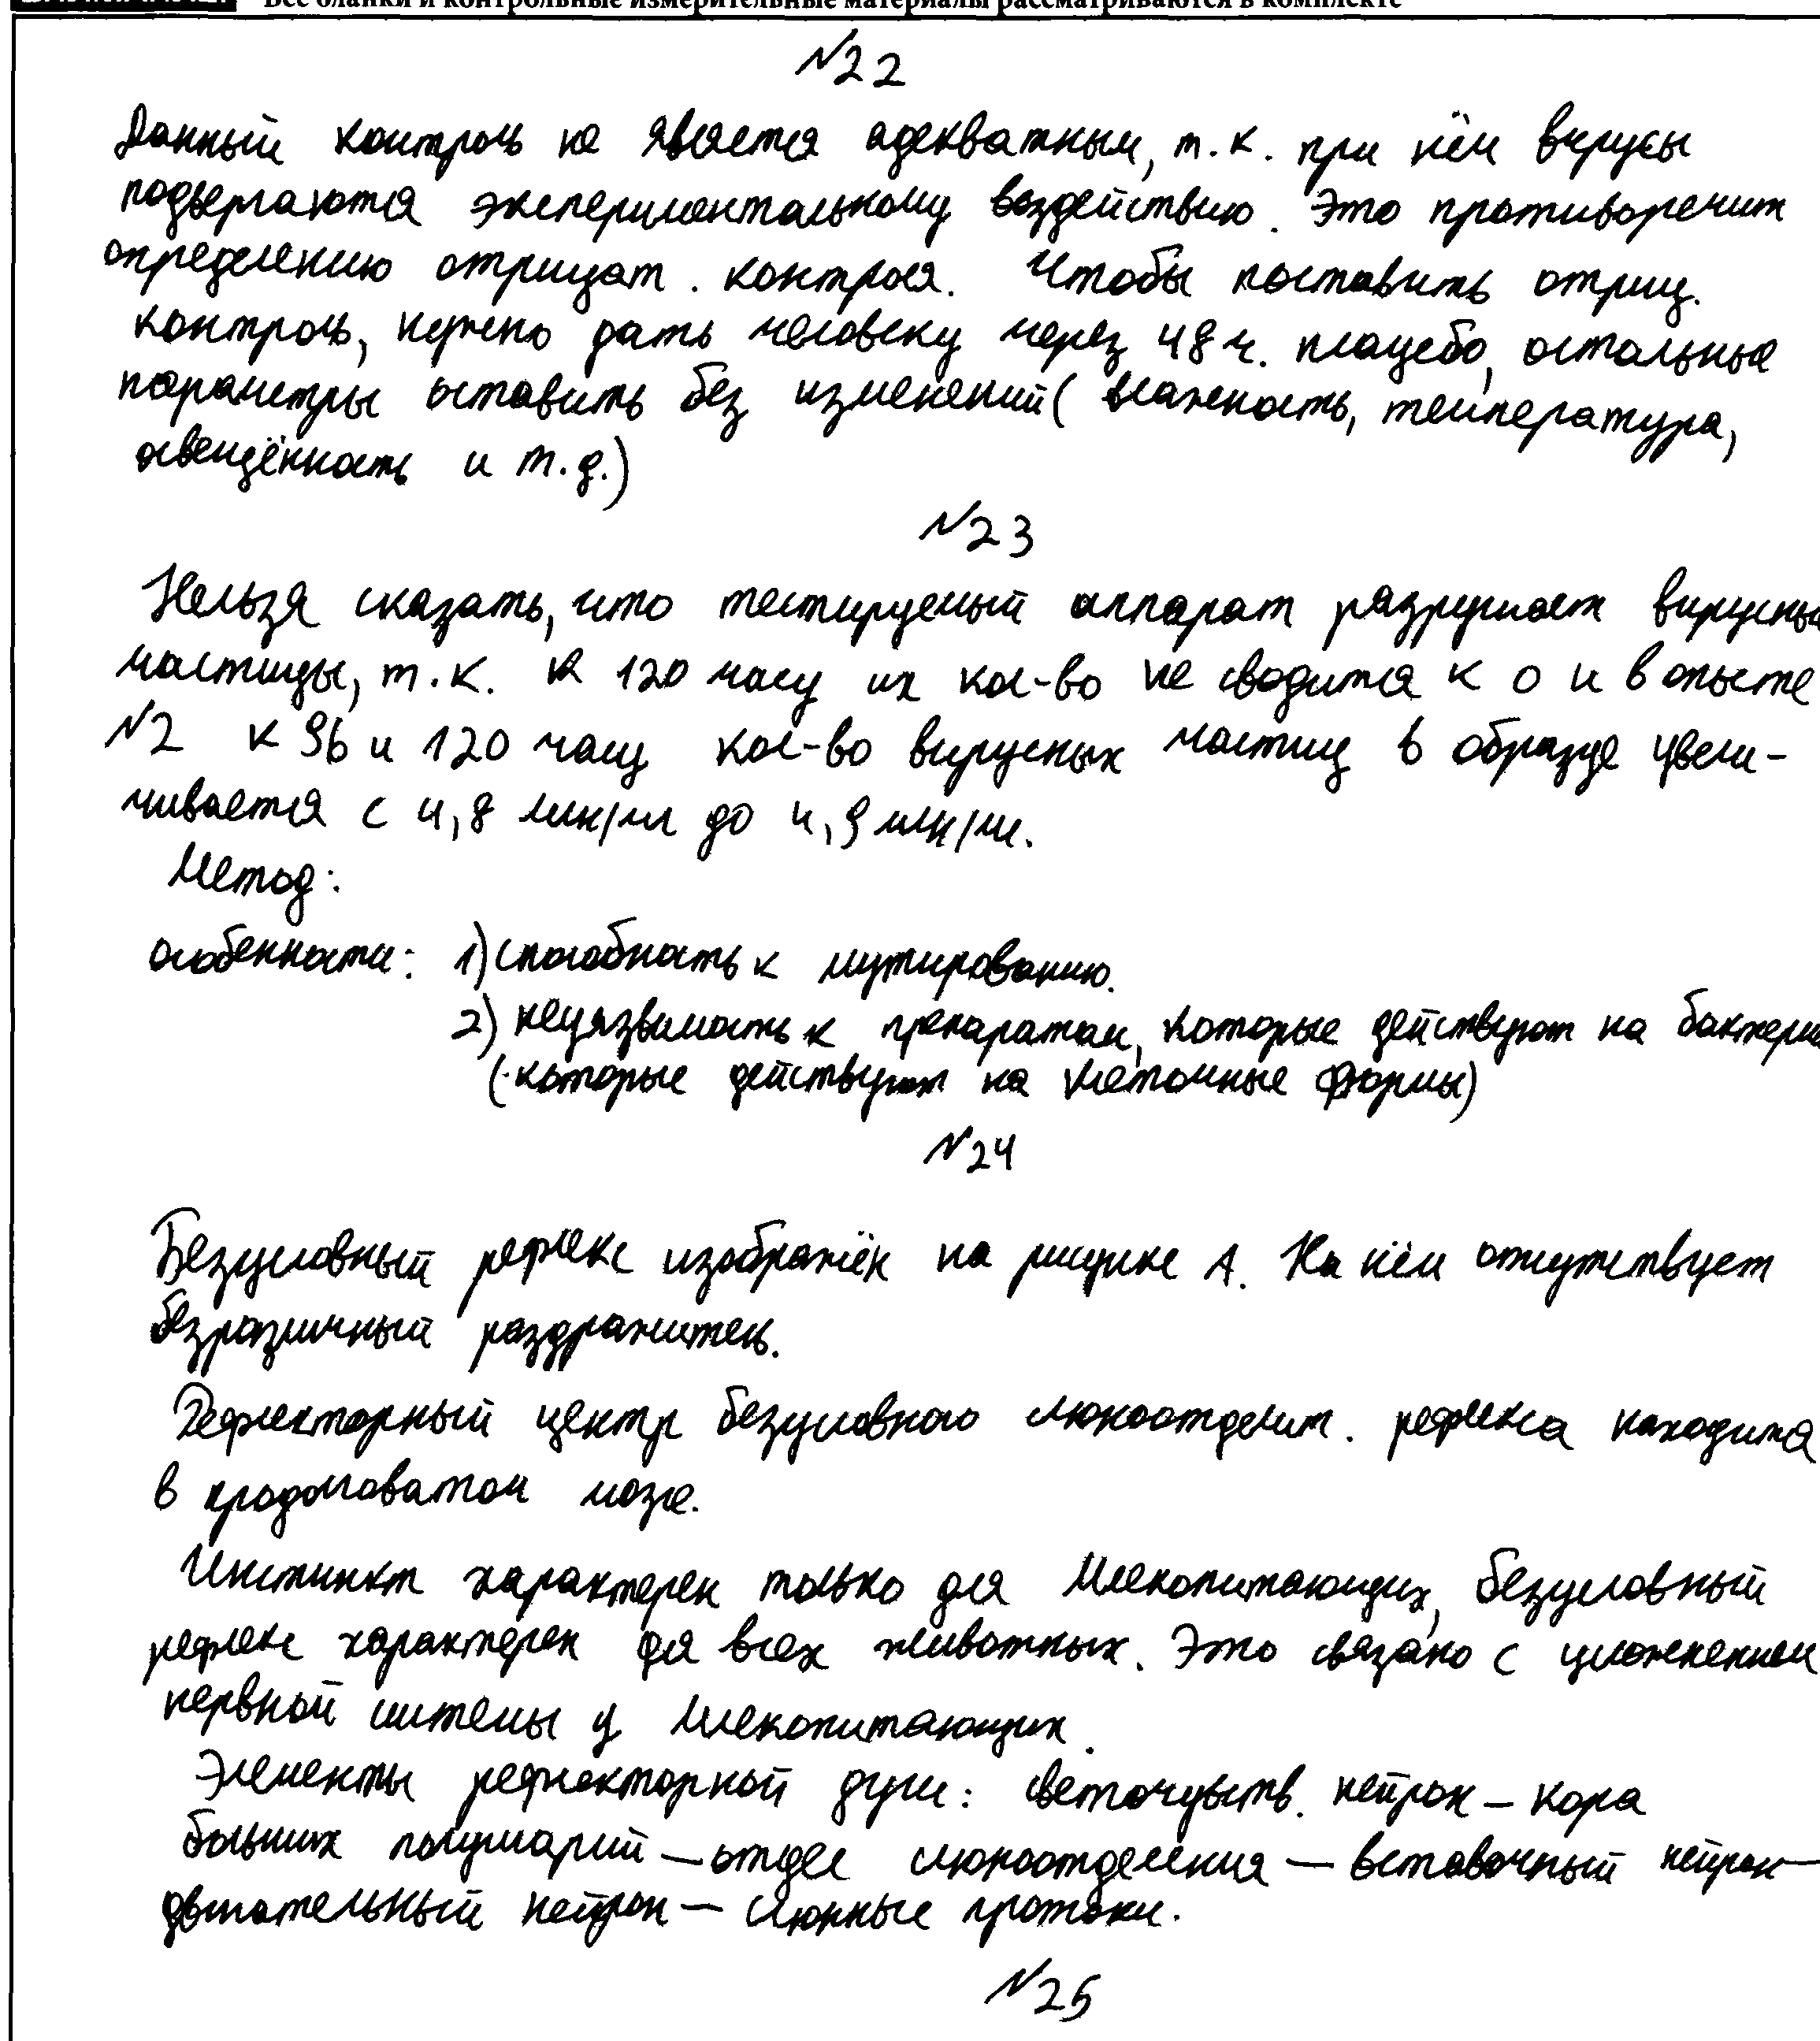 Все бланки и контрольные измерительные материалы рассматриваются в комплекте
№22
Данный контроль не является адекватным, т.к. при нём вирусы
подвергаются экспериментальному воздействию. Это противоречит
определению отрицат. контроля. Чтобы поставить отриц.
контроль, нужно дать человеку через 48 ч. плацебо, остальные
параметры оставить без изменений (влажность, температура,
освещённость и т.д.)
№23
Нельзя сказать, что тестируемый аппарат разрушает вирусные
частицы, т.к. к 120 часу их кол-во не сводится к 0 и в опыте
№2 к 96 и 120 часу кол-во вирусных частиц в образце увели-
чивается с 4,8 млн/мл до 4,9 млн/мл.
Метод:
особенности: 1) способность к мутированию.
2) неуязвимость к препаратам, которые действуют на бактерии
(которые действуют на клеточные формы)
№24
Безусловный рефлекс изображён на рисунке А. На нём отсутствует
безразличный раздражитель.
Рефлекторный центр безусловного слюноотделит. рефлекса находится
в продолговатом мозге.
Инстинкт характерен только для Млекопитающих, безусловный
рефлекс характерен для всех животных. Это связано с усложнением
нервной системы у Млекопитающих.
Элементы рефлекторной дуги: светочувств. нейрон – кора
больших полушарий – отдел слюноотделения – вставочный нейрон –
двигательный нейрон – слюнные протоки.
№25